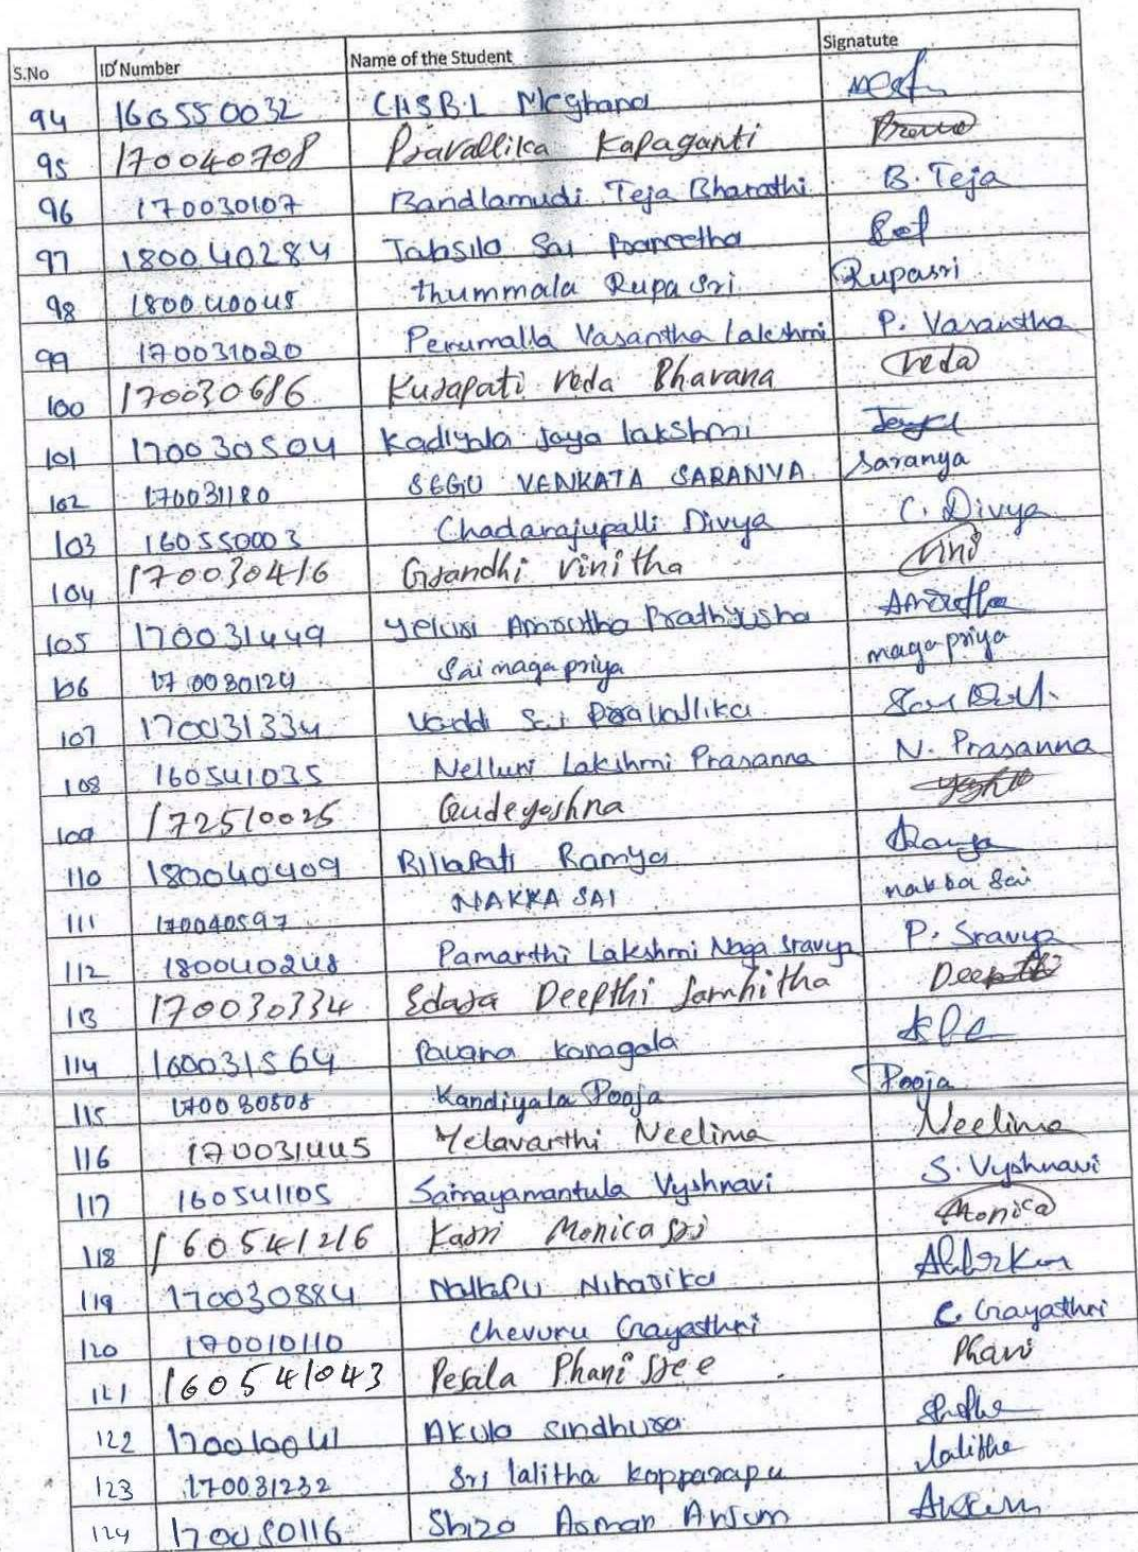 S.No ID Number Name of the Student Signatute
94 160550032 CHSBL Meghana
95 170040708 Pravallika Kapaganti
96 170030107 Bandlamudi Teja Bharathi B. Teja
97 180040284 Tabsilo Sai
98 180040045 thummala Rupa Sri Rupasri
99 170031020 Perumalla Vasantha Lakshmi P. Vasantha
100 170030686 Kurapati veda Bhavana veda
101 170030504 Kadiyala Jaya lakshmi
102 170031180 SEGU VENKATA SARANYA Saranya
103 160550003 Chadarajupalli Divya C. Divya
104 170030416 Grandhi vinitha Vini
105 170031449 Yeluri Amrutha Prathyusha Amrutha
106 170030124 Sai naga priya naga priya
107 170031334 Vaddi Sai Pravallika
108 160541035 Nelluri Lakshmi Prasanna N. Prasanna
109 172510025 Gudeyoshna
110 180040409 Billapati Ramya Ramya
111 170040597 NAKKA SAI nakka Sai
112 180040248 Pamarthi Lakshmi Naga Sravya P. Sravya
113 170030334 Edara Deepthi Samhitha Deepthi
114 160031564 Pavana kanagala
115 170030508 Kandiyala Pooja Pooja
116 170031445 Yelavarthi Neelima Neelima
117 160541105 Samayamantula Vyshnavi S. Vyshnavi
118 160541216 Kasri Monica sri Monica
119 170030884 Nallapu Niharika
120 170010110 Chevuru Gayasthri C. Gayasthri
121 160541043 Pesala Phani sree Phani
122 170010041 Akula sindhura
123 170031232 Sri lalitha kopparapu lalitha
124 170030116 Shiza Aaman Anjum